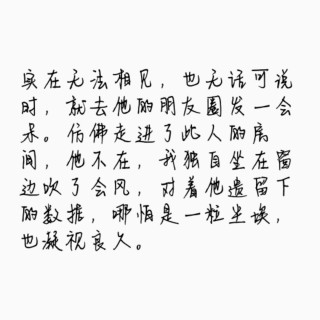 实在无法相见，也无话可说
时，就去他的朋友圈发一会
呆。仿佛走进了此人的房
间，他不在，我独自坐在窗
边吹了会风，对着他遗留下
的数据，哪怕是一粒尘埃，
也凝视良久。